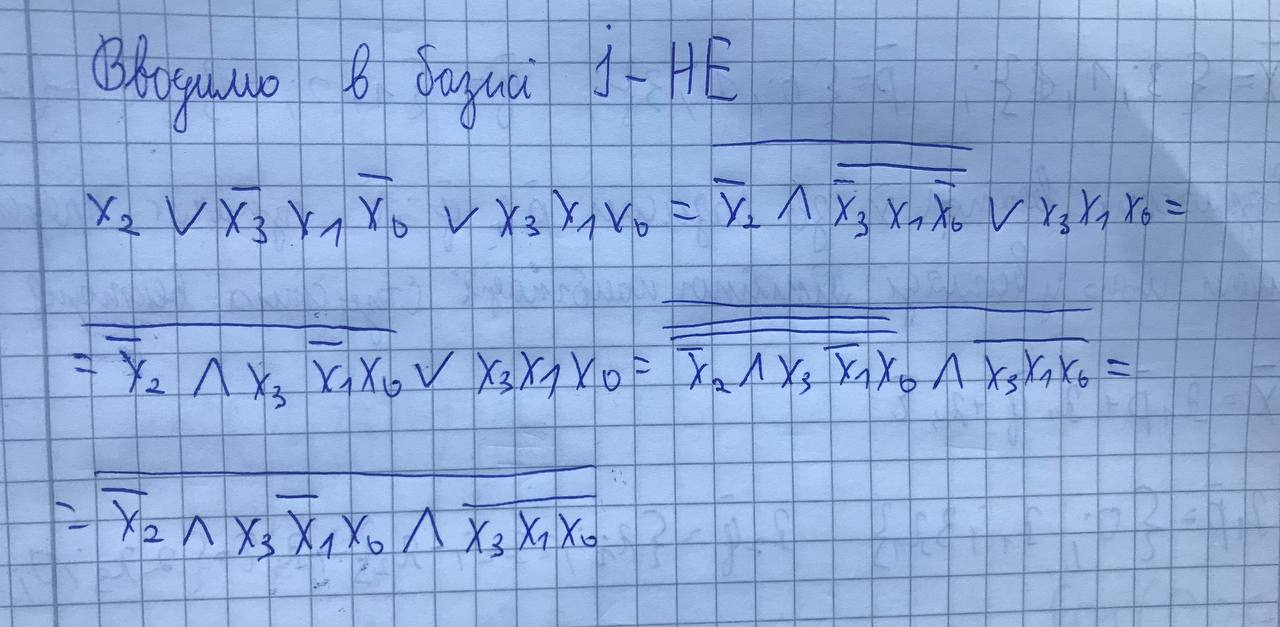 Вводимо в базисі І-НЕ
x̅₂ ∨ x̅₃ x₁ x̅₀ ∨ x₃ x₁ x₀ = x̅₂ ∧ x̅₃ x₁ x̅₀ ∨ x₃ x₁ x₀ =
= x̅₂ ∧ x₃ x̅₁ x₀ ∨ x₃ x₁ x₀ = x̅₂ ∧ x₃ x̅₁ x₀ ∧ x₃ x₁ x₀ =
= x̅₂ ∧ x₃ x̅₁ x₀ ∧ x₃ x₁ x₀